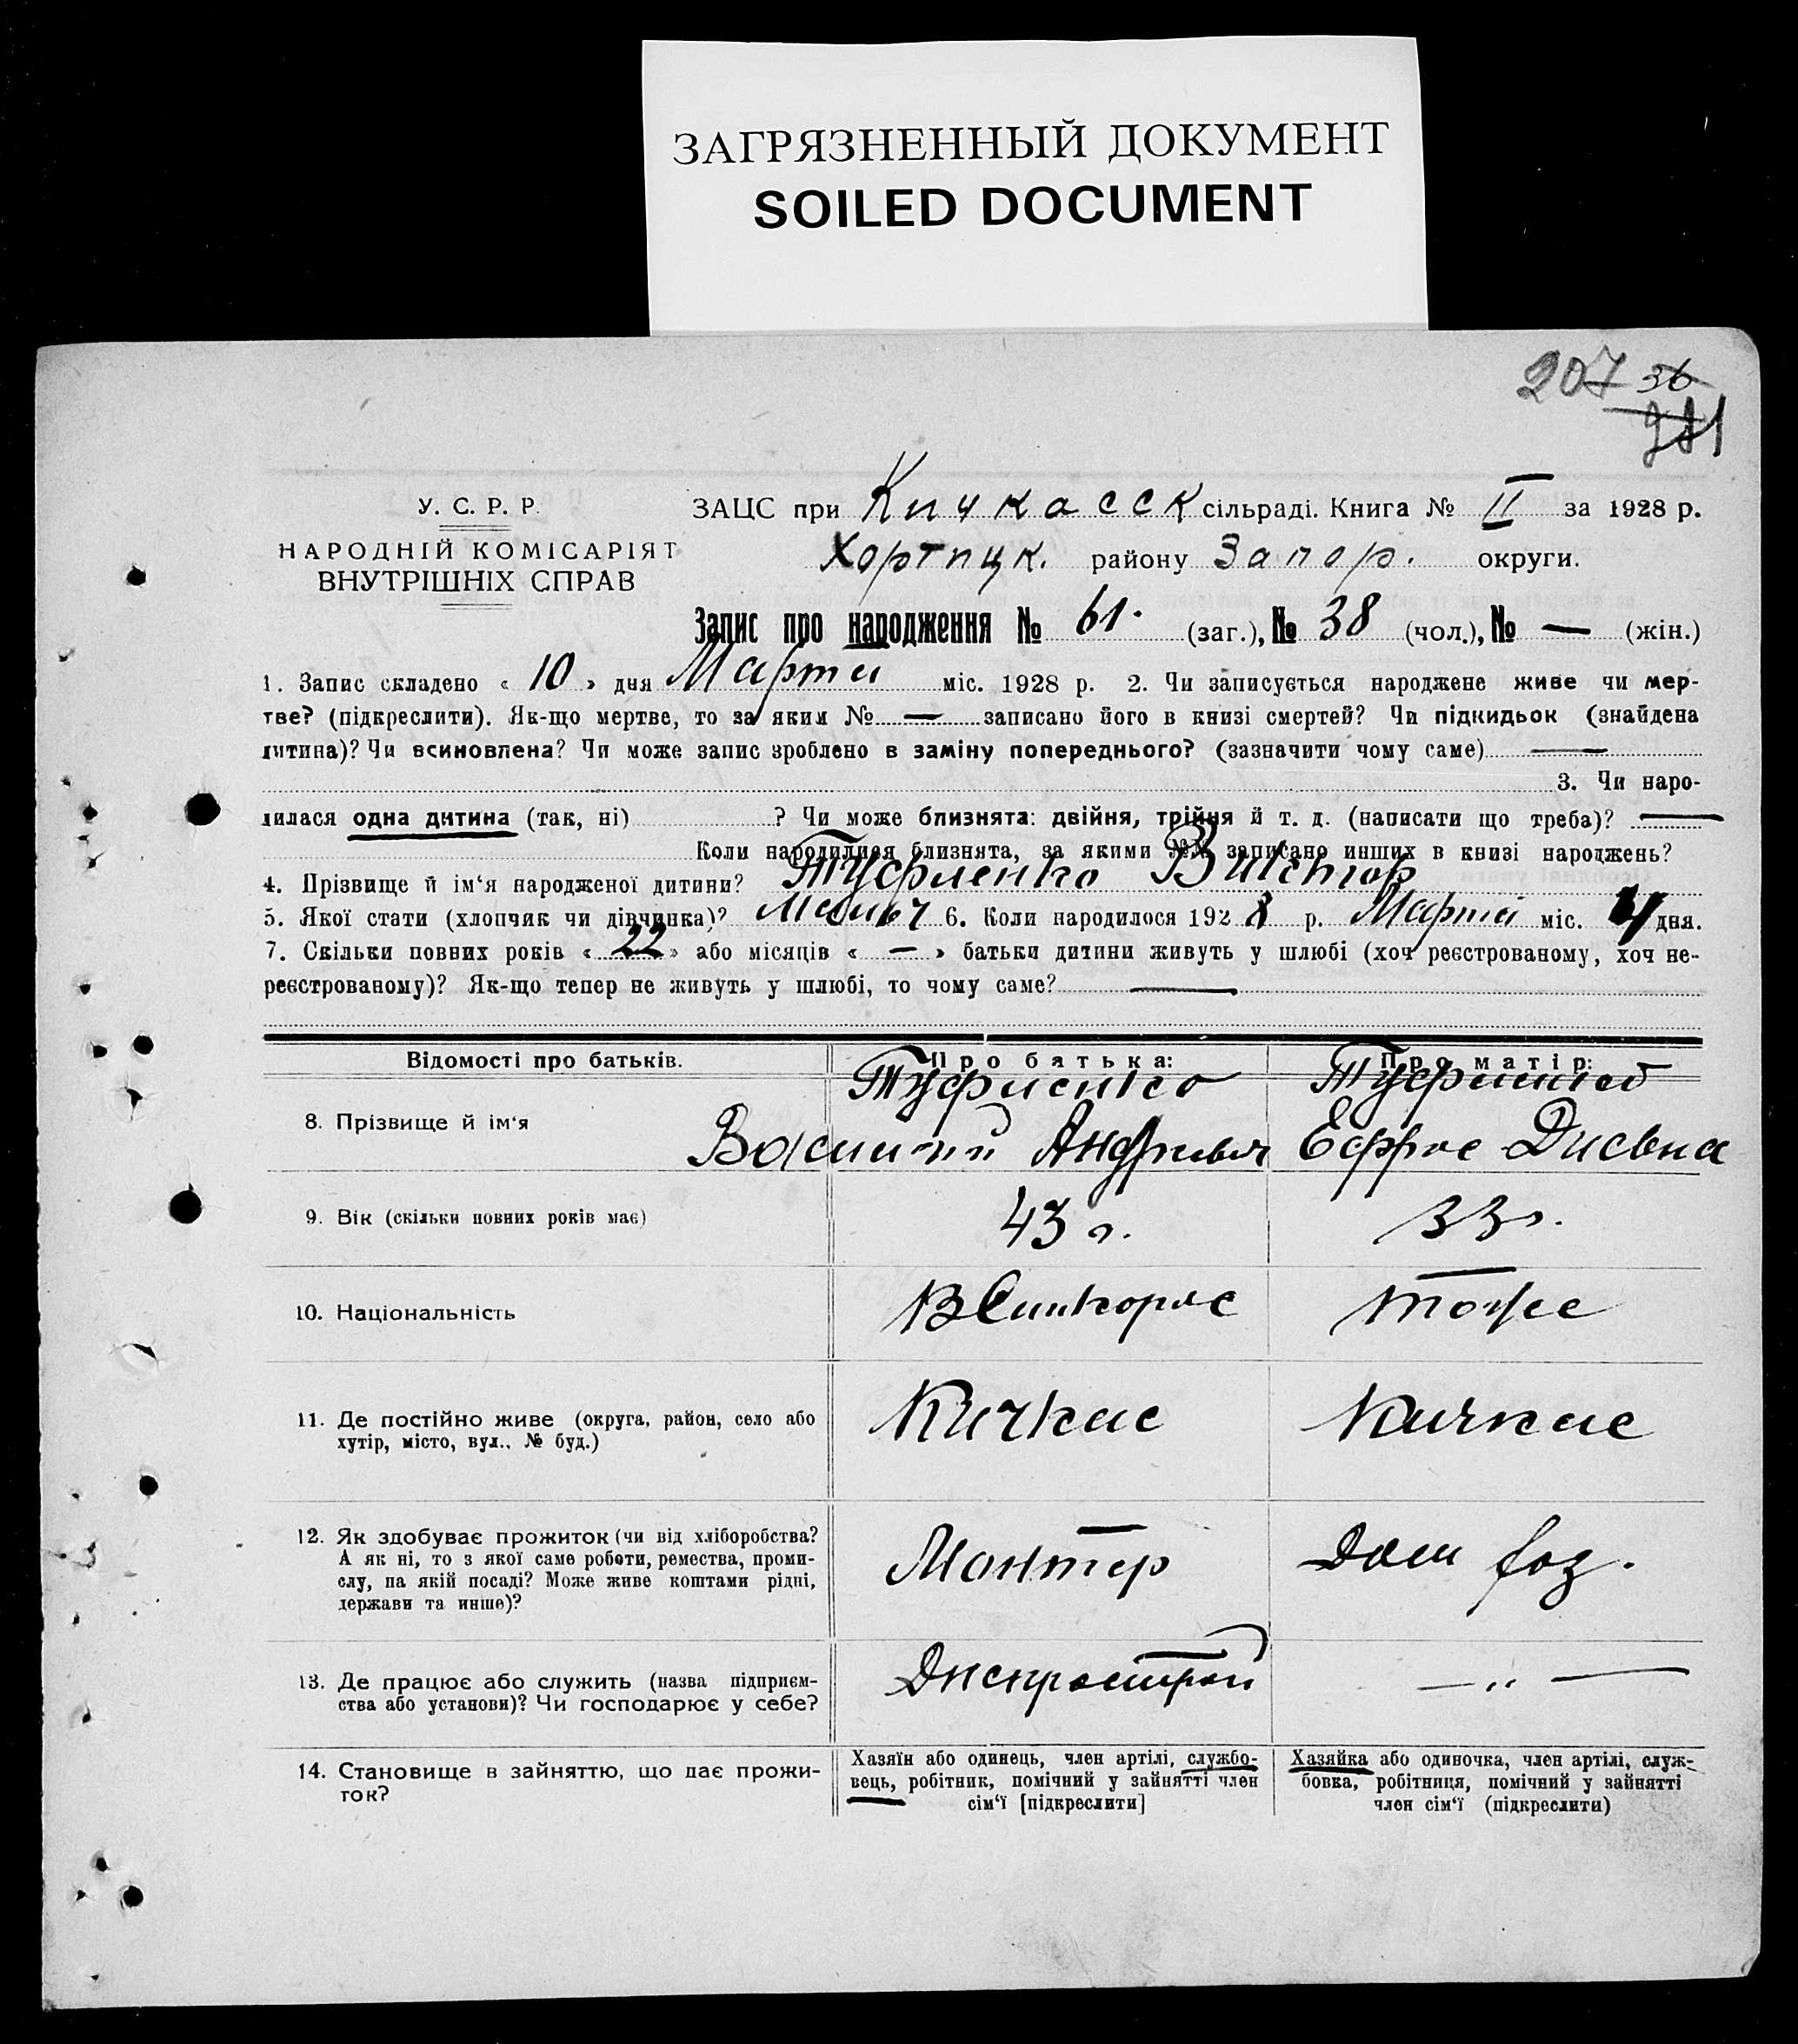 ЗАГРЯЗНЕННЫЙ ДОКУМЕНТ
SOILED DOCUMENT
207 36
У. С. Р. Р.
НАРОДНІЙ КОМІСАРІЯТ
ВНУТРІШНІХ СПРАВ
ЗАЦС при Кичкасск сільраді. Книга № II за 1928 р.
Хортицк. району Запор. округи.
Запис про народження № 61. (заг.), № 38 (чол.), № — (жін.)
1. Запис складено « 10 » дня Марта міс. 1928 р. 2. Чи записується народжене живе чи мер-
тве? (підкреслити). Як-що мертве, то за яким № — записано його в книзі смертей? Чи підкидьок (знайдена
дитина)? Чи всиновлена? Чи може запис зроблено в заміну попереднього? (зазначити чому саме) —
3. Чи наро-
дилася одна дитина (так, ні) ? Чи може близнята: двійня, трійня й т. д. (написати що треба)? —
Коли народилися близнята, за якими №№ записано инших в книзі народжень?
4. Прізвище й ім‘я народженої дитини? Туфленко Виктор
5. Якої стати (хлопчик чи дівчинка)? Мальч 6. Коли народилося 1928 р. Марта міс. 4 дня.
7. Скільки повних років « 22 » або місяців « — » батьки дитини живуть у шлюбі (хоч реєстрованому, хоч не-
реєстрованому)? Як-що тепер не живуть у шлюбі, то чому саме? —
Відомості про батьків. Про батька: Про матір:
8. Прізвище й ім‘я
Туфленко
Василий
9. Вік (скільки повних років має) 43 г. 33 г.
10. Національність тоже
11. Де постійно живе (округа, район, село або
хутір, місто, вул., № буд.)
Кичкас Кичкас
12. Як здобуває прожиток (чи від хліборобства?
А як ні, то з якої саме роботи, ремества, проми-
слу, на якій посаді? Може живе коштами рідні,
держави та инше)?
Монтер Дом хоз.
13. Де працює або служить (назва підприєм-
ства або установи)? Чи господарює у себе?
Днепрострой — „ —
14. Становище в зайняттю, що дає прожи-
ток?
Хазяїн або одинець, член артілі, службо-
вець, робітник, помічний у зайнятті член
сім‘ї [підкреслити]
Хазяйка або одиночка, член артілі, служ-
бовка, робітниця, помічний у зайнятті
член сім‘ї (підкреслити)